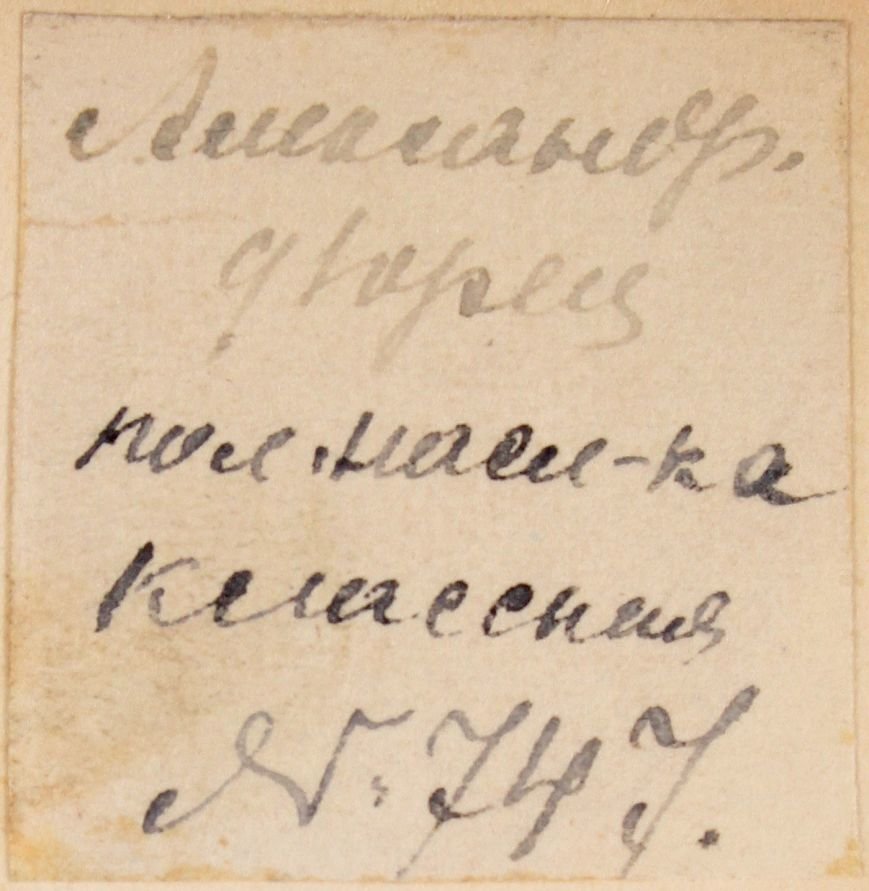 Александр.
дворец
пол. насл-ка
Классная
№ 747.